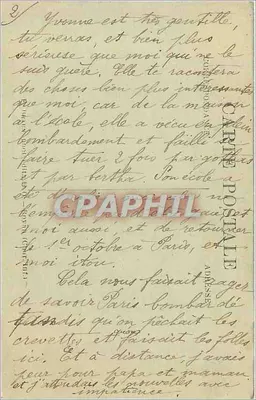 2/ Yvonne est très gentille,
tu verras, et bien plus
sérieuse que moi qui ne le
suis guère. Elle te racontera
des choses bien plus intéressantes
que moi, car de la maison
à l'école, elle a vécu en plein
bombardement et failli
faire tuer 2 fois par gothas
et par bertha. Son école a
moi aussi, et de retourner
le 1er octobre à Paris, et
moi itou.
Cela nous faisait rager
de savoir Paris bombardé
tandis qu'on pêchait les
crevettes et faisait les folles
ici. Et à distance j'avais
peur pour papa et maman
et j'attendais les nouvelles avec
impatience.
CARTE POSTALE
ADRESSE
CPAPHIL